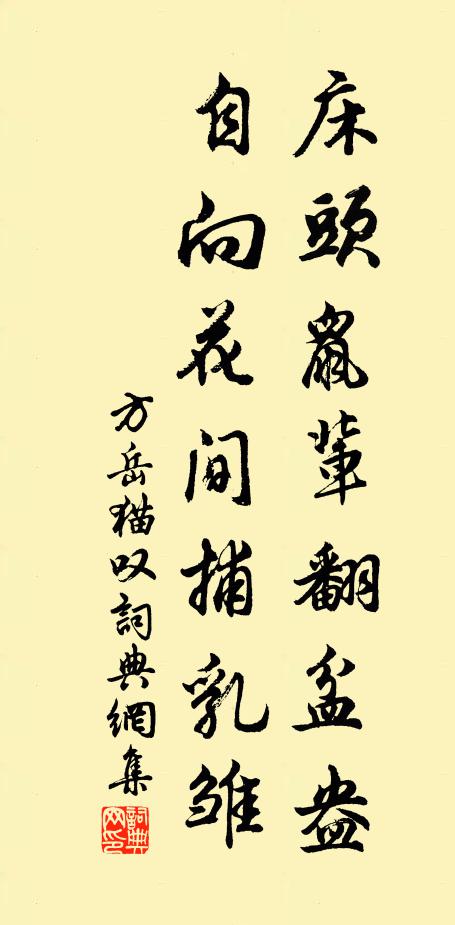 床頭鼠輩翻盆盎
自向花间捕乳雏
方岳猫叹詞典網集
詞典網印